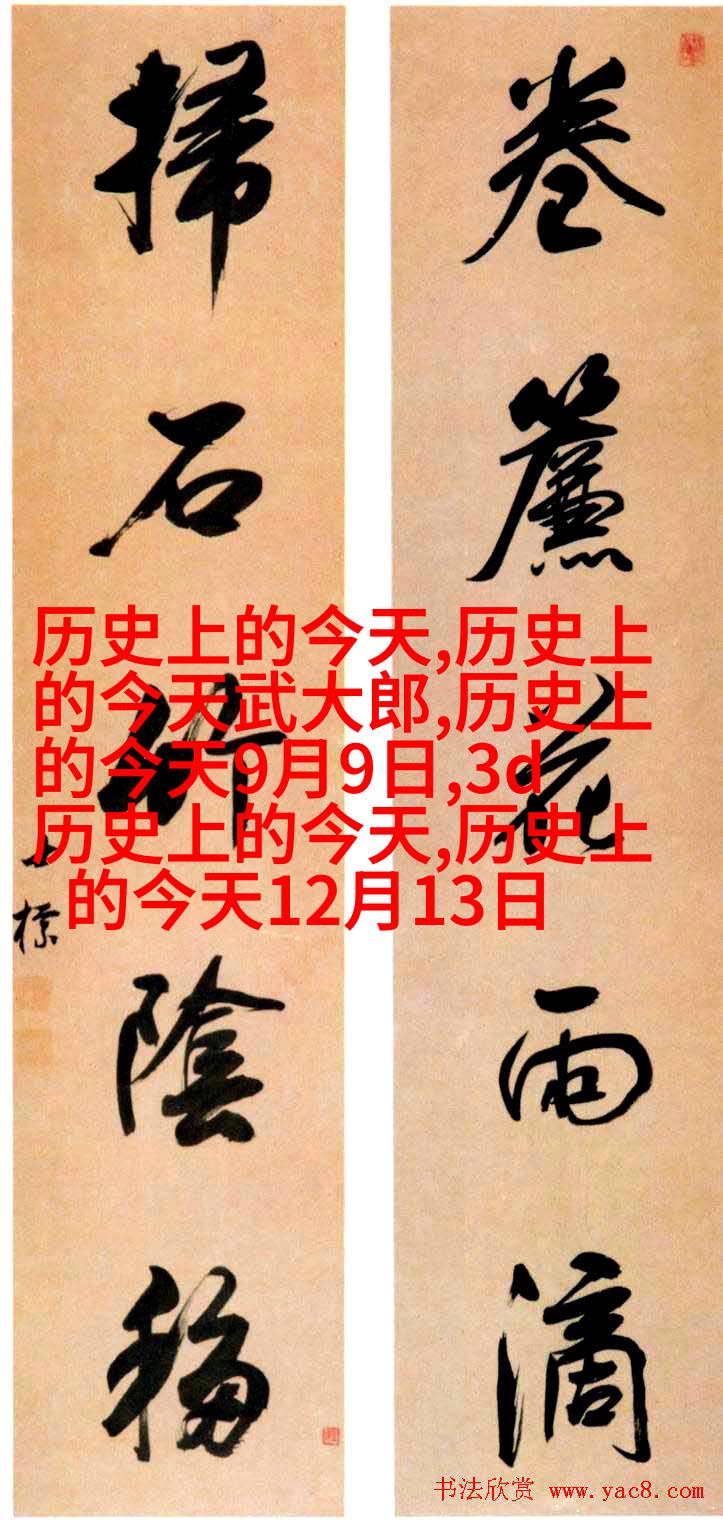 卷簾花雨滴
掃石竹陰移
士標
历史上的今天,历史上
的今天武大郎,历史上
的今天9月9日,3d
历史上的今天,历史上
的今天12月13日
书法欣赏 www.yac8.com